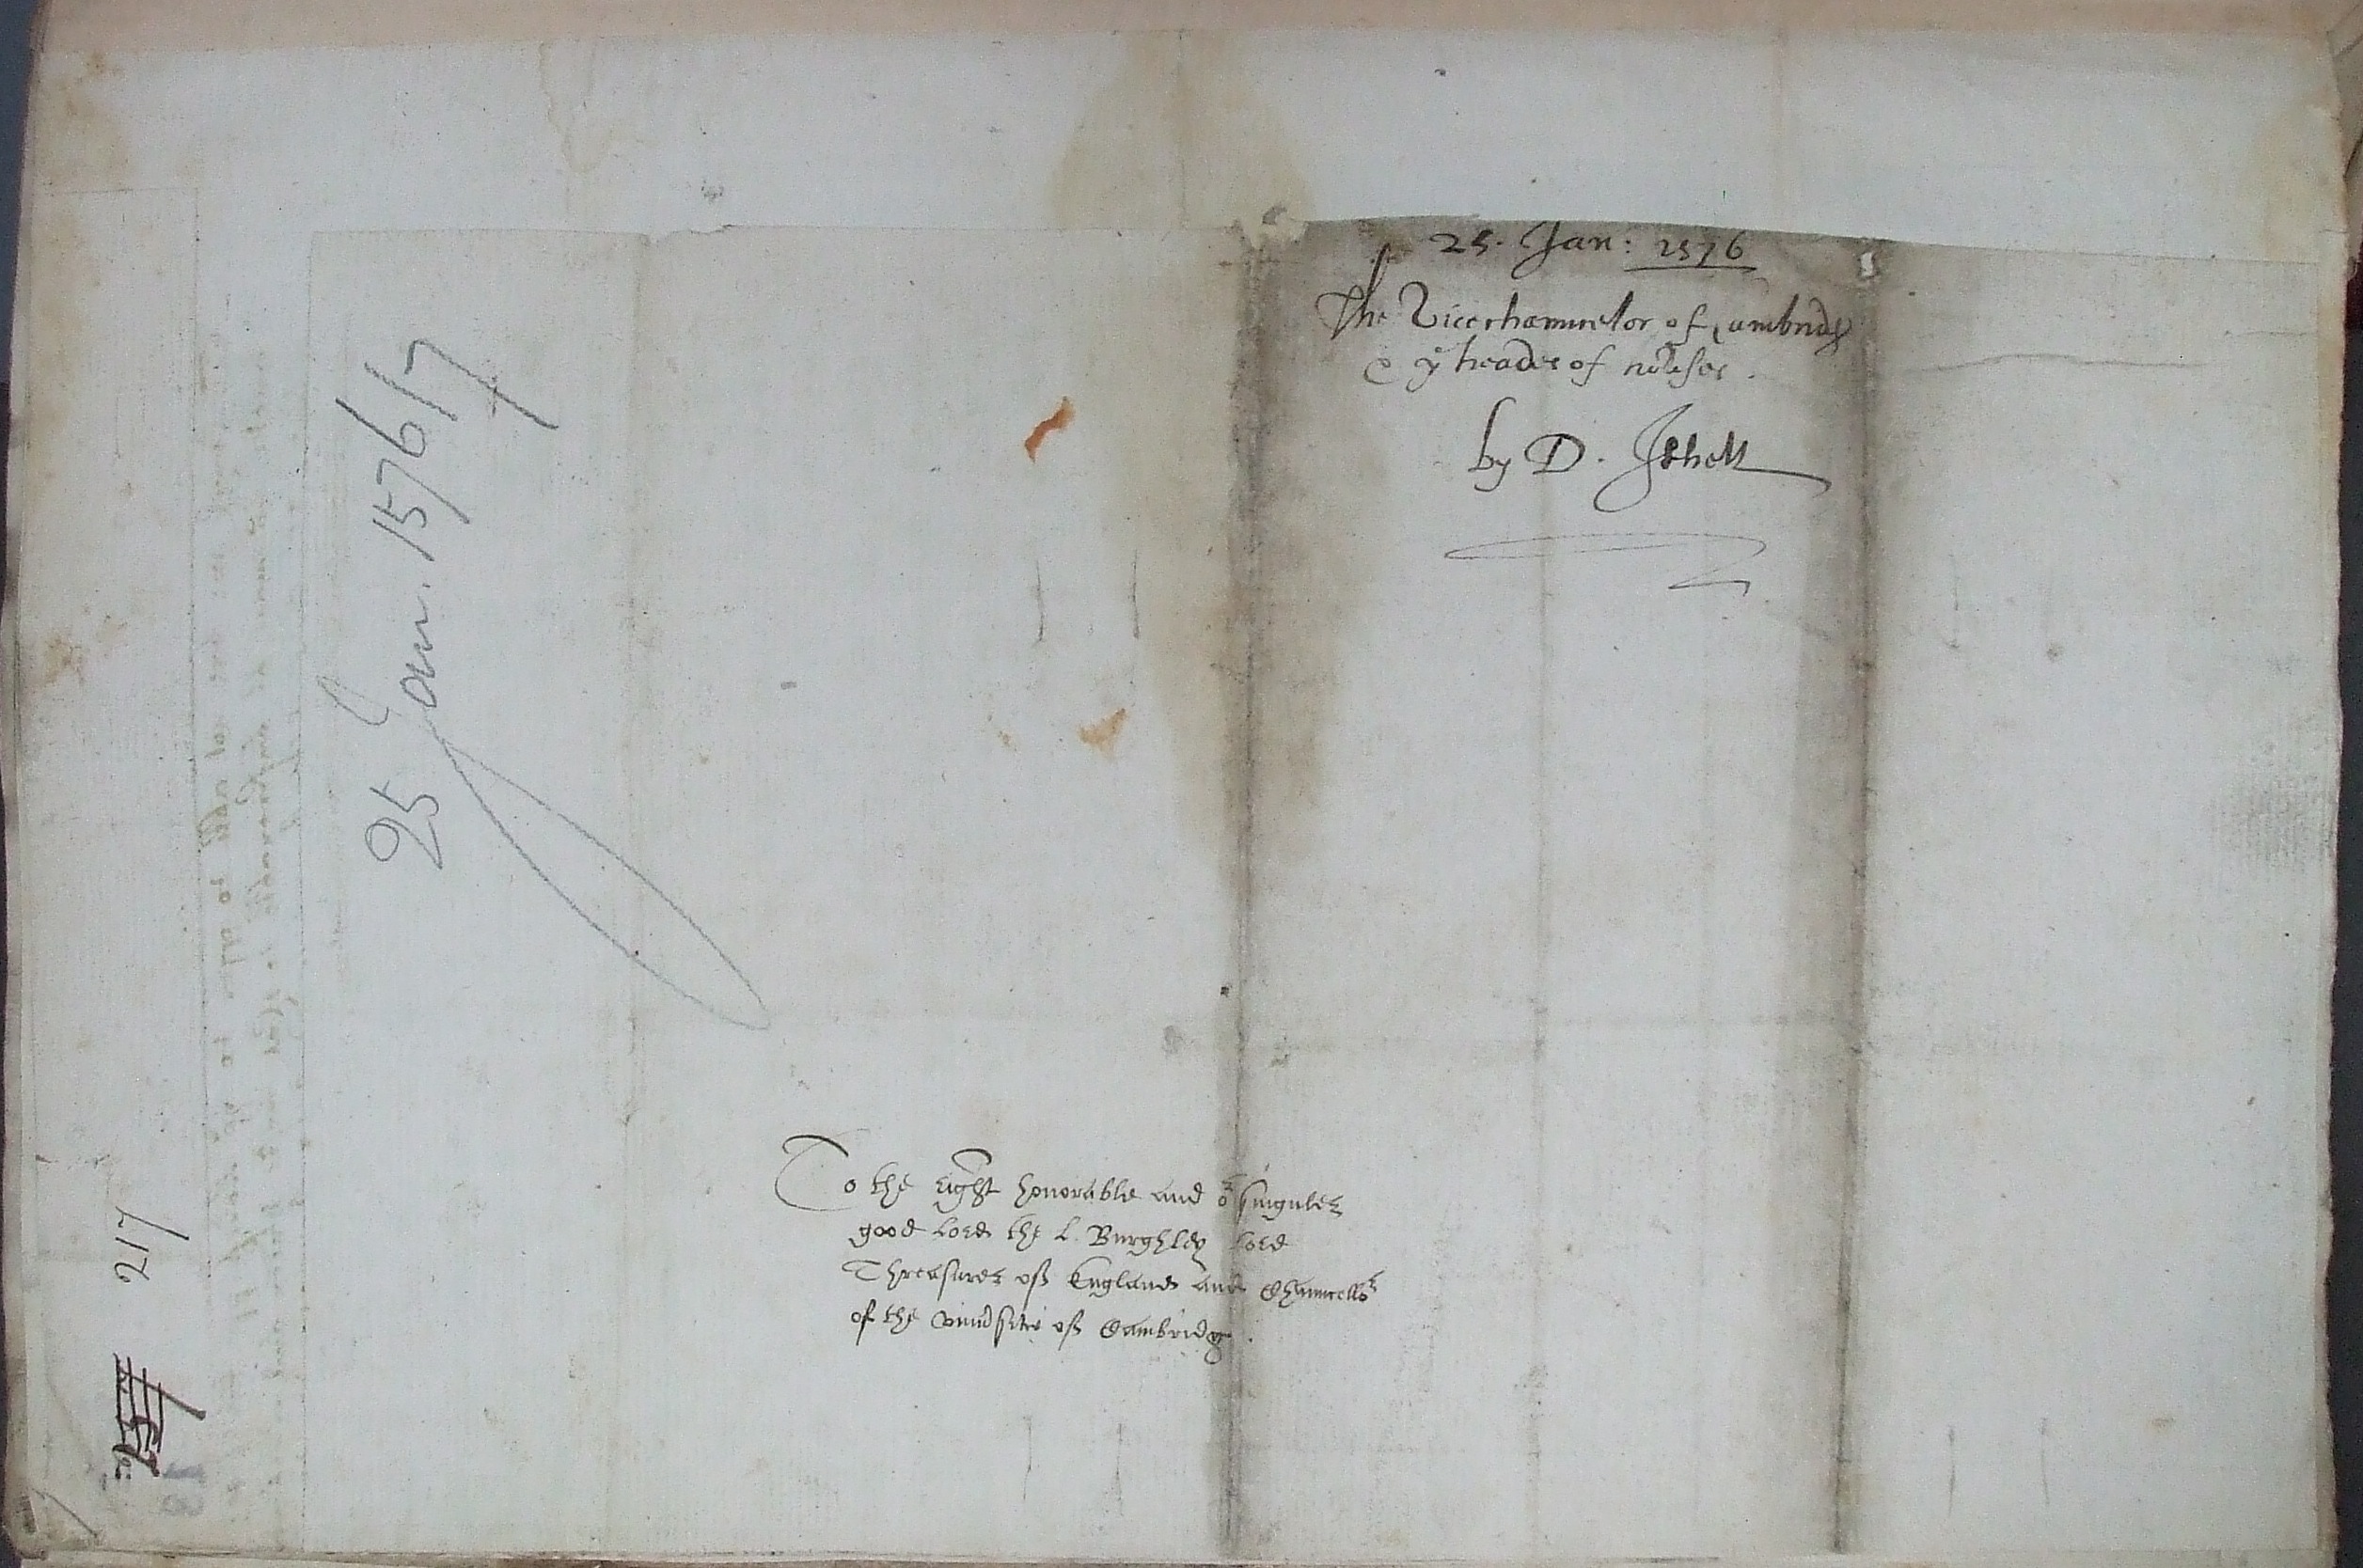 25. Jan: 1576
The Vicechauncelor of Cambridg
& yͤ heades of howses.
by D. Ithell
25 Jan. 1576/7
To the right honorable and oʳ singuler
good Lord the L. Burghley Lord
Threasurer off England and Chauncelloʳ
of the vniuersitie off Cambridge.
217